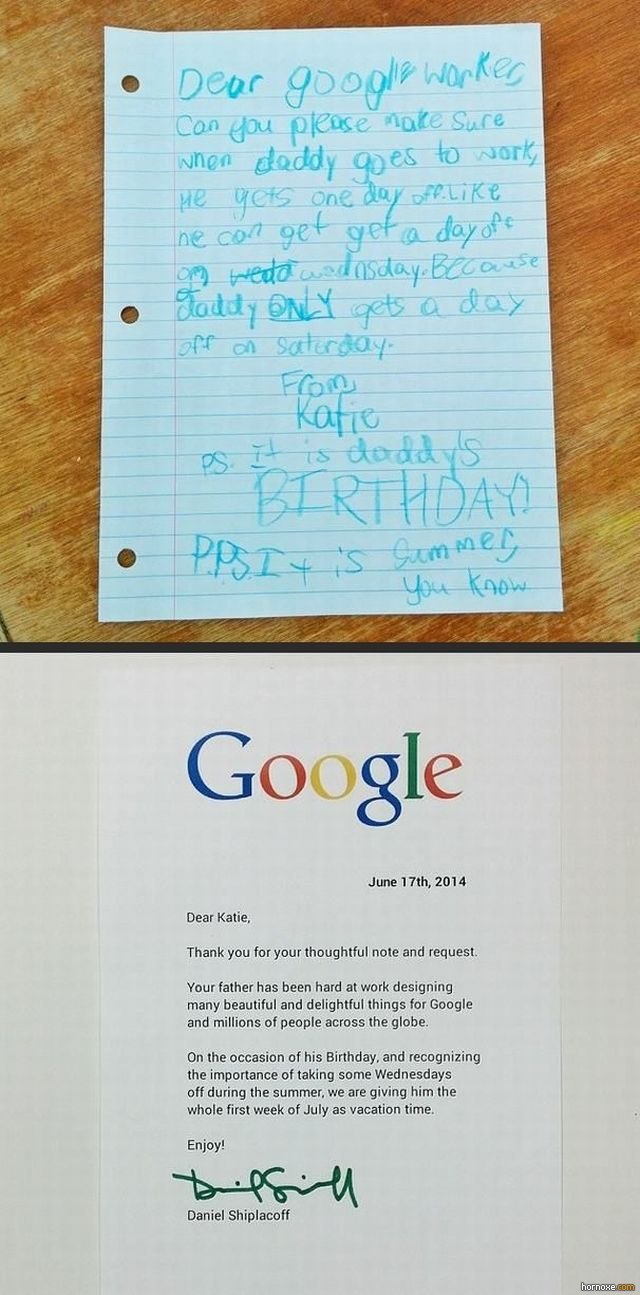 Dear google worker,
Can you please make sure
when daddy goes to work,
He gets one day off. Like
he can get get a day off
on wednsday. BECause
daddy ONLY gets a day
off on saturday.
From,
Katie
PS. It is daddy's
BIRTHDAY!
P.P.S It is summer,
you know
Google
June 17th, 2014
Dear Katie,
Thank you for your thoughtful note and request.
Your father has been hard at work designing
many beautiful and delightful things for Google
and millions of people across the globe.
On the occasion of his Birthday, and recognizing
the importance of taking some Wednesdays
off during the summer, we are giving him the
whole first week of July as vacation time.
Enjoy!
Daniel Shiplacoff
hornoxe.com